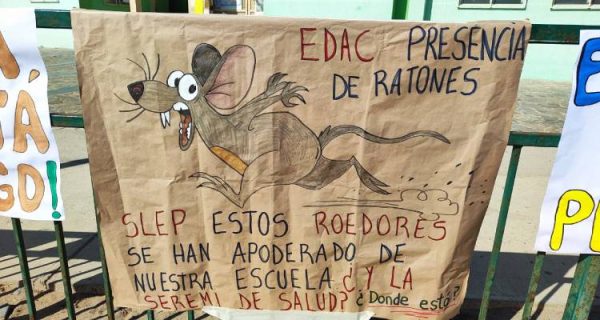 EDAC PRESENCIA
DE RATONES
SLEP ESTOS ROEDORES
SE HAN APODERADO DE
NUESTRA ESCUELA ¿Y LA
SEREMI DE SALUD? ¿Donde está?
A
TÁ
GO!